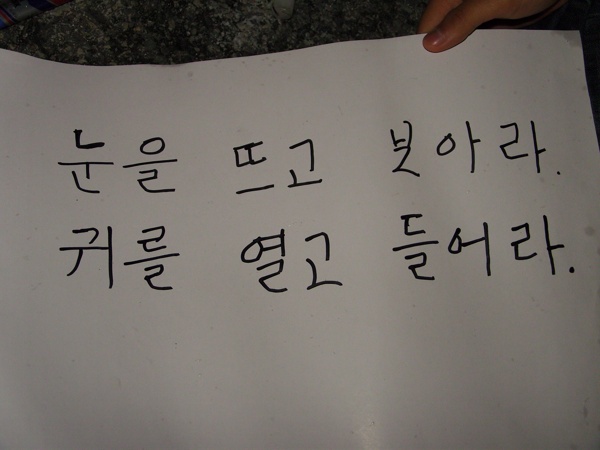 눈을 뜨고 보아라.
귀를 열고 들어라.